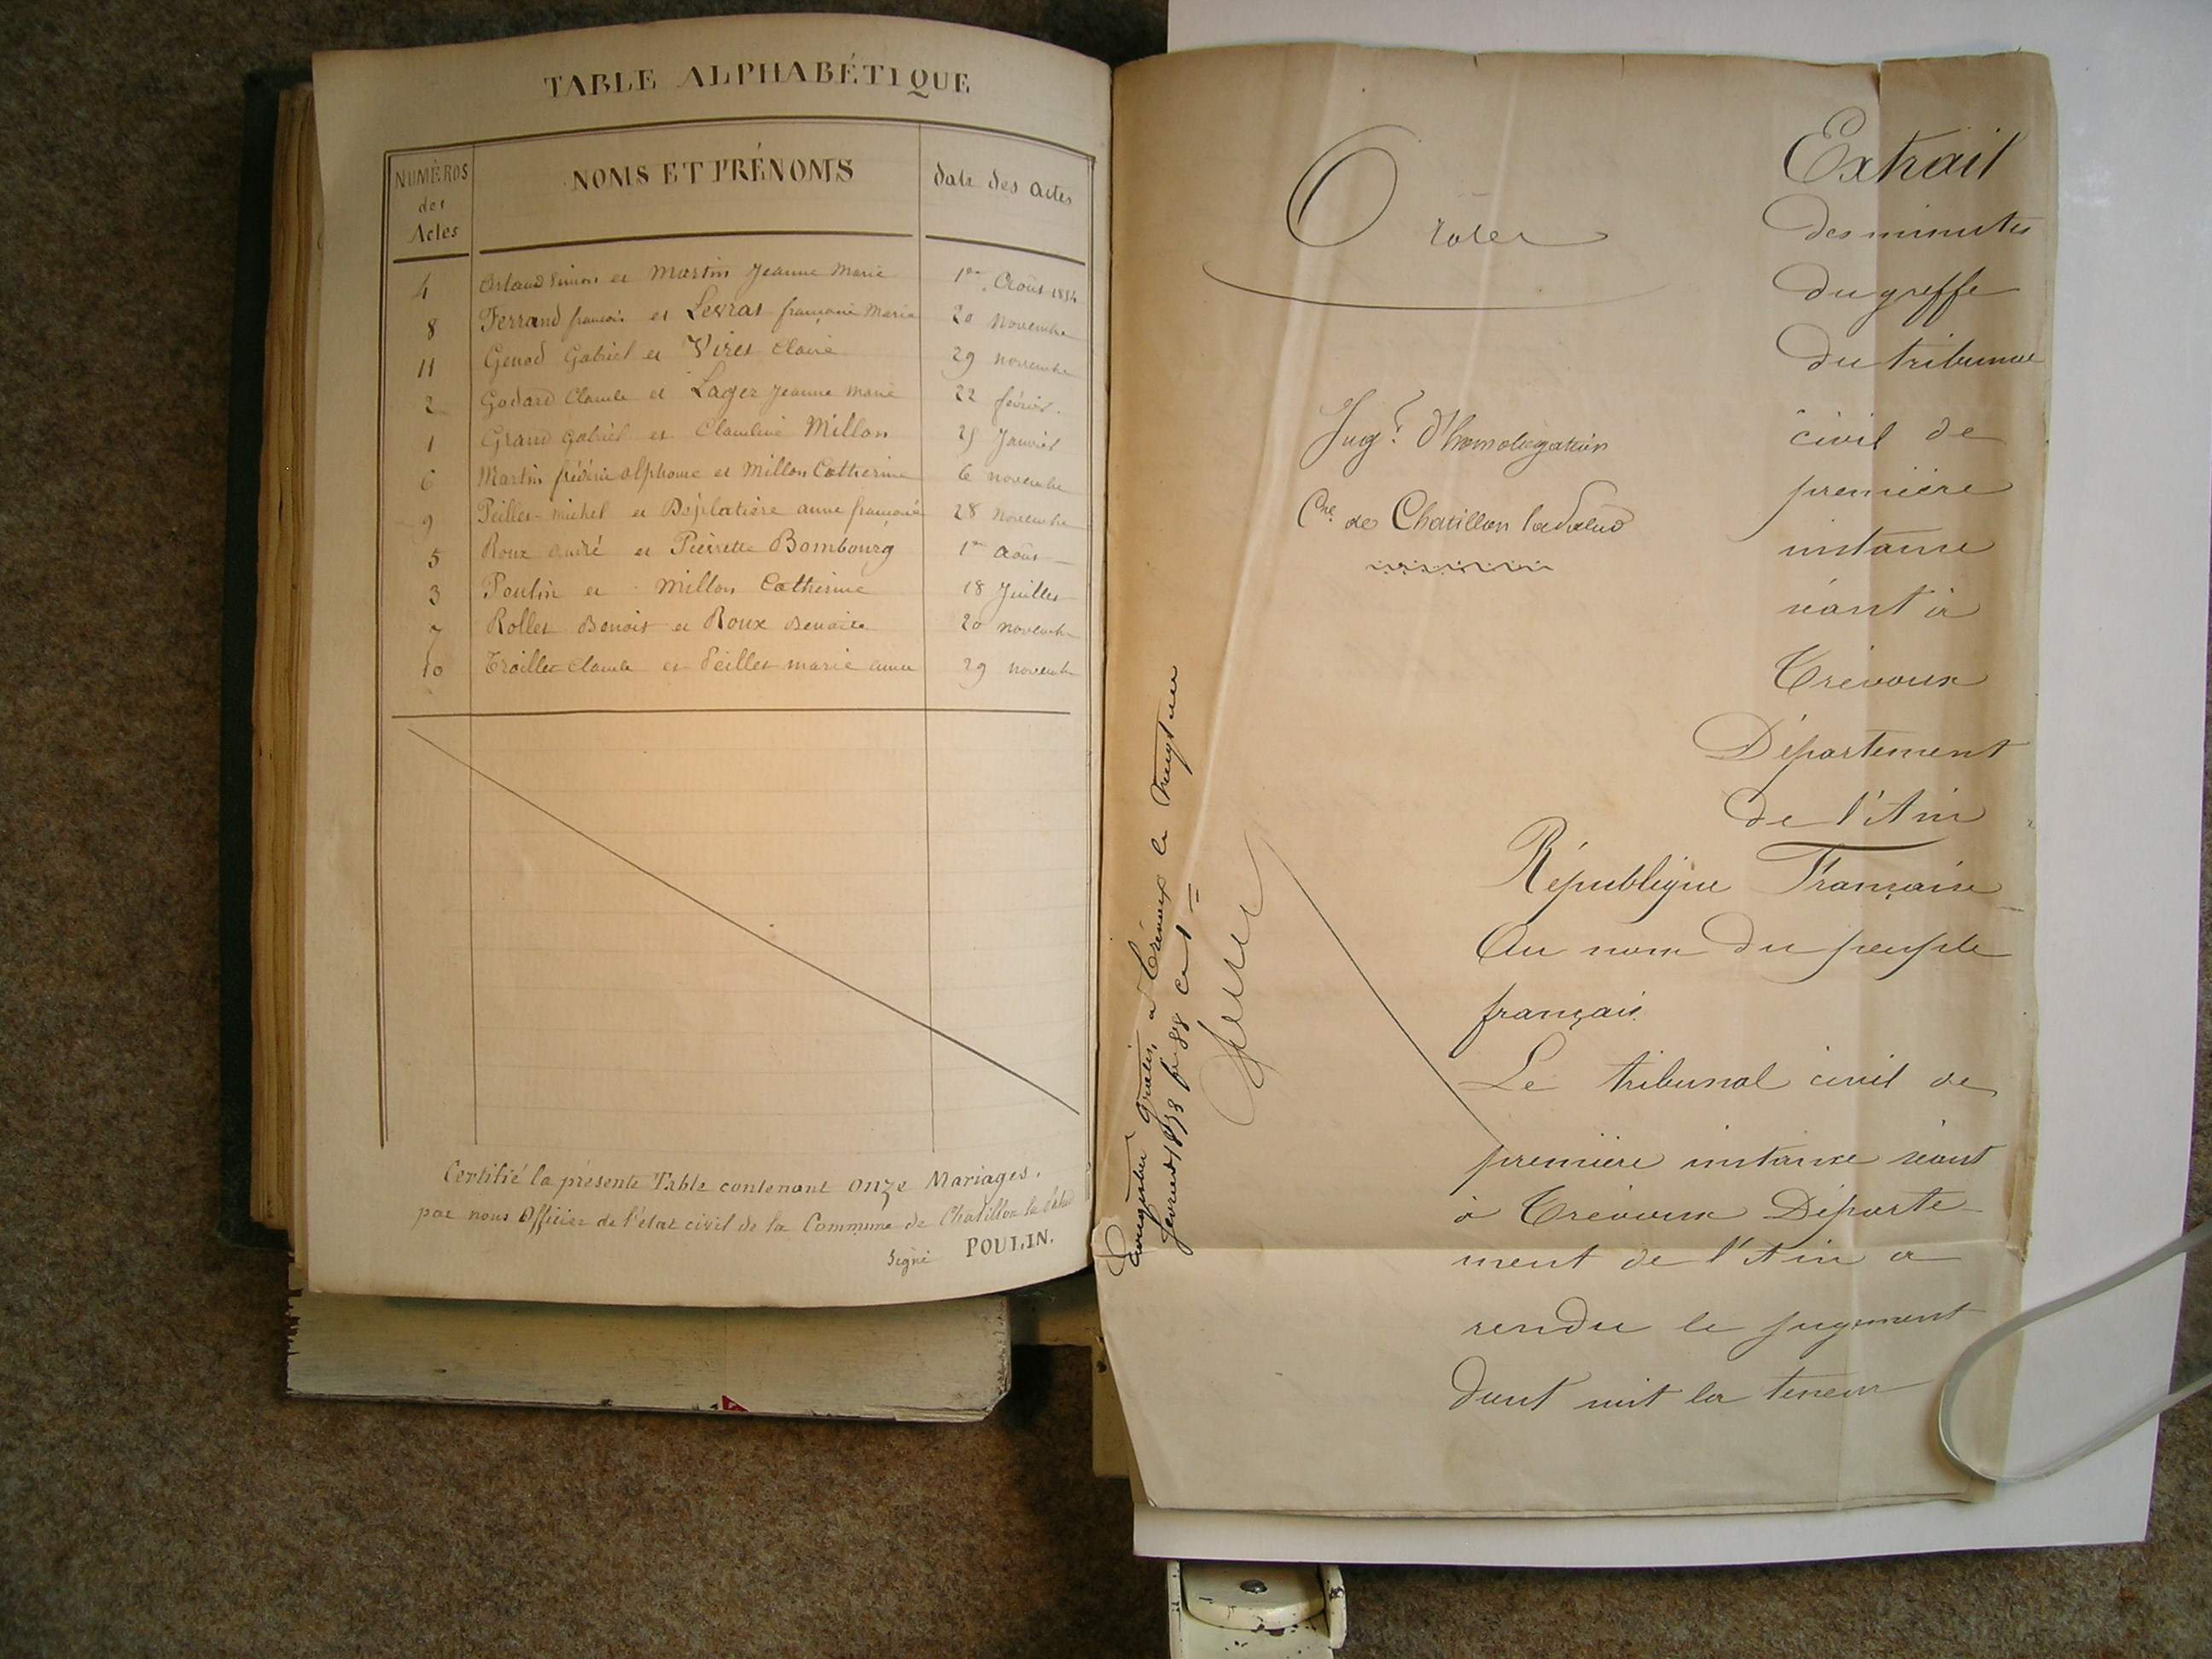 TABLE ALPHABÉTIQUE
NUMÉROS des Actes
NOMS ET PRÉNOMS
date des actes
4 Simon et Martin Jeanne Marie 1er Août 1854
8 Ferrand françois et Levrat françoise Marie 20 Novembre
11 Genod Gabriel et Viret Claire 29 novembre
2 Godard Claude et Lager Jeanne Marie 22 février.
1 Grand Gabriel et Claudine Millon 25 Janvier
6 Martin frédéric alphonse et Millon Catherine 6 novembre
9 Peillet michel et Déplatière anne françoise 28 Novembre
5 Roux André et Pierrette Bombourg 1er Août
3 Poulin et Millon Catherine 18 Juillet
7 Rollet Benoit et Roux Benoite 20 novembre
10 Troillet Claude et Peillet marie anne 29 novembre
Certifié la présente Table contenant onze Mariages,
par nous Officier de l'état civil de la Commune de Chatillon la Palud
Signé POULIN.
Extrait
des minutes
du greffe
du tribunal
civil de
première
instance
séant à
Trévoux
Département
de l'Ain
O rôles
Jugt d'homologation
Cne de Chatillon la Palud
République Française
Au nom du peuple
français.
Le tribunal civil de
première instance séant
à Trévoux Départe-
ment de l'Ain a
rendu le jugement
dont suit la teneur
Enregistré gratis, à Trévoux le vingt un
février 18 cent